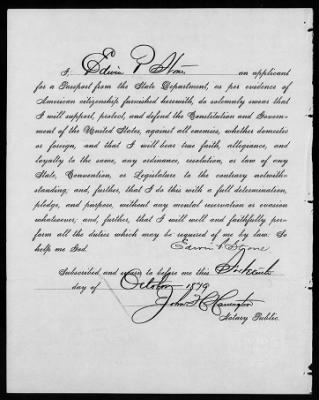 I, Edwin P. Stone an applicant
for a Passport from the State Department, as per evidence of
American citizenship furnished herewith, do solemnly swear that
I will support, protect, and defend the Constitution and Govern-
ment of the United States, against all enemies, whether domestic
or foreign, and that I will bear true faith, allegiance, and
loyalty to the same, any ordinance, resolution, or law of any
State, Convention, or Legislature to the contrary notwith-
standing; and, further, that I do this with a full determination,
pledge, and purpose, without any mental reservation or evasion
whatsoever; and, further, that I will well and faithfully per-
form all the duties which may be required of me by law: So
help me God.
Edwin P. Stone
Subscribed and sworn to before me this
day of October 1879
John H.
Notary Public.